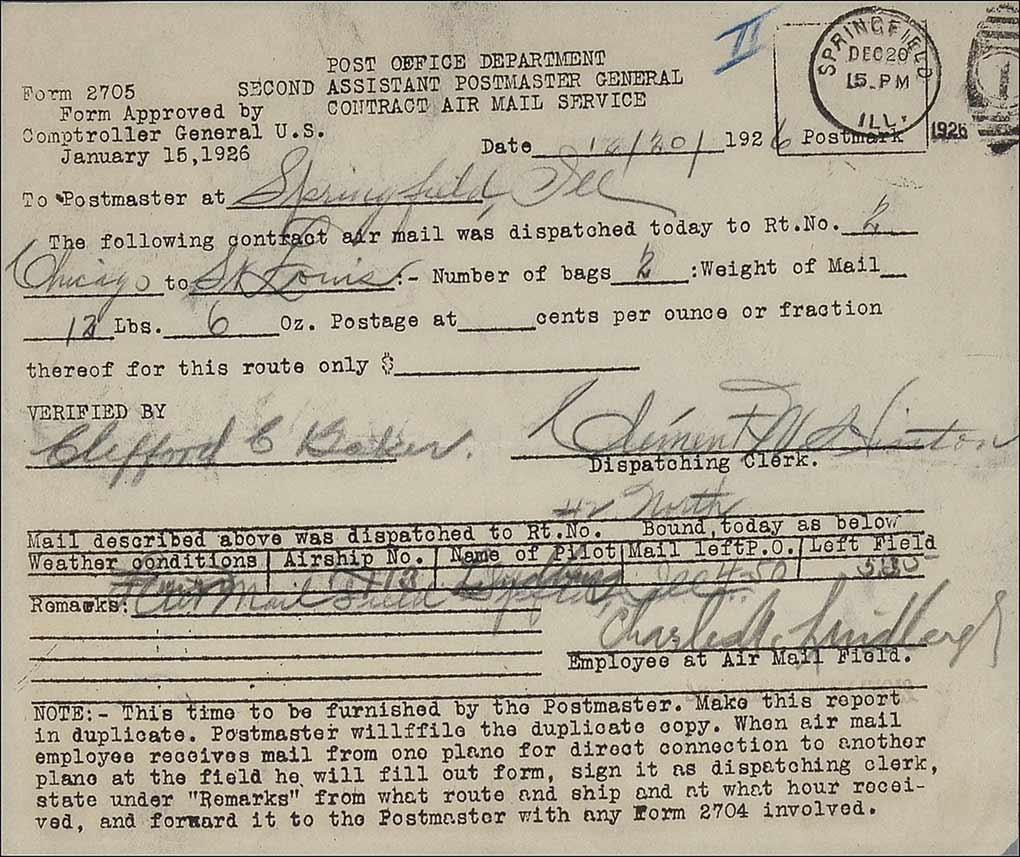 II
POST OFFICE DEPARTMENT
SECOND ASSISTANT POSTMASTER GENERAL
CONTRACT AIR MAIL SERVICE
Form 2705
Form Approved by
Comptroller General U.S.
January 15,1926
SPRINGFIELD
DEC 20
ILL.
1926
Date 12/20/ 1926 Postmark
To Postmaster at Springfield, Ill
The following contract air mail was dispatched today to Rt.No. 2
Chicago to St Louis :- Number of bags 2 :Weight of Mail
12 Lbs. 6 Oz. Postage at cents per ounce or fraction
thereof for this route only $
VERIFIED BY
Clifford C Baker. Clement M Hinton
Dispatching Clerk.
#2 North
Mail described above was dispatched to Rt.No. Bound,today as below
Weather conditions Airship No. Name of Pilot Mail leftP.O. Left Field
Lindbergh 4-50
Remarks: Air Mail Field Spfld, Ill
Charles A. Lindbergh
Employee at Air Mail Field.
NOTE:- This time to be furnished by the Postmaster. Make this report
in duplicate. Postmaster willffile the duplicate copy. When air mail
employee receives mail from one plane for direct connection to another
plane at the field he will fill out form, sign it as dispatching clerk,
state under "Remarks" from what route and ship and at what hour recei-
ved, and forward it to the Postmaster with any Form 2704 involved.